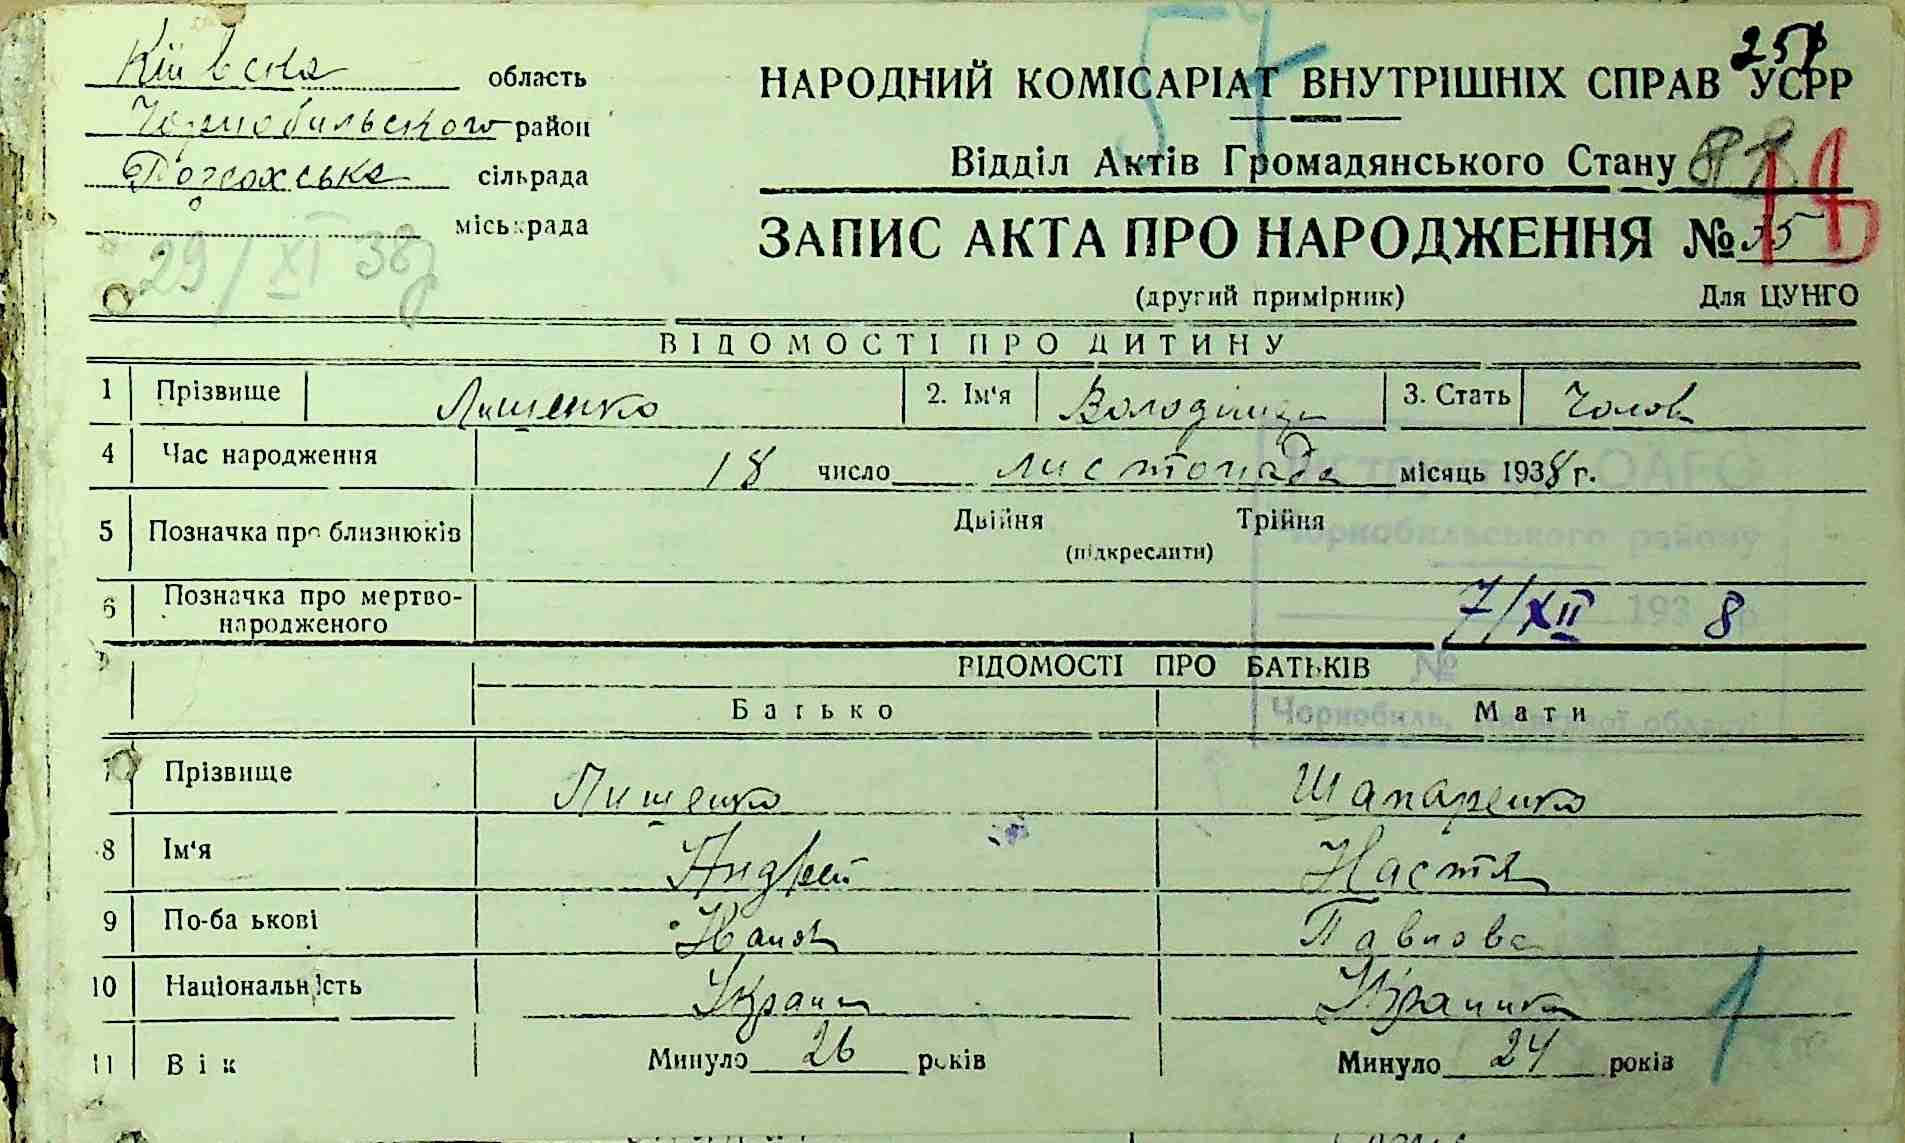 57
251
Київська область
Чорнобильського район
сільрада
міськрада
29/XI 38р
НАРОДНИЙ КОМІСАРІАТ ВНУТРІШНІХ СПРАВ УСРР
Відділ Актів Громадянського Стану
88
ЗАПИС АКТА ПРО НАРОДЖЕННЯ № 55
(другий примірник) Для ЦУНГО
ВІДОМОСТІ ПРО ДИТИНУ
1 Прізвище Лищенко 2. Ім'я Володимир 3. Стать Чолов
4 Час народження 18 число листопада місяць 1938 г.
5 Позначка про близнюків Двійня Трійня
(підкреслити)
Чорнобильського району
6 Позначка про мертво-
народженого
7/XII 1938 р
ВІДОМОСТІ ПРО БАТЬКІВ №
Батько Мати
Чорнобиль, Київської області
7 Прізвище Лищенко Шапаренко
8 Ім'я Андрей Настя
9 По-ба ькові Павлова
10 Національність Украин Украинка
11 Вік Минуло 26 років Минуло 24 років
1